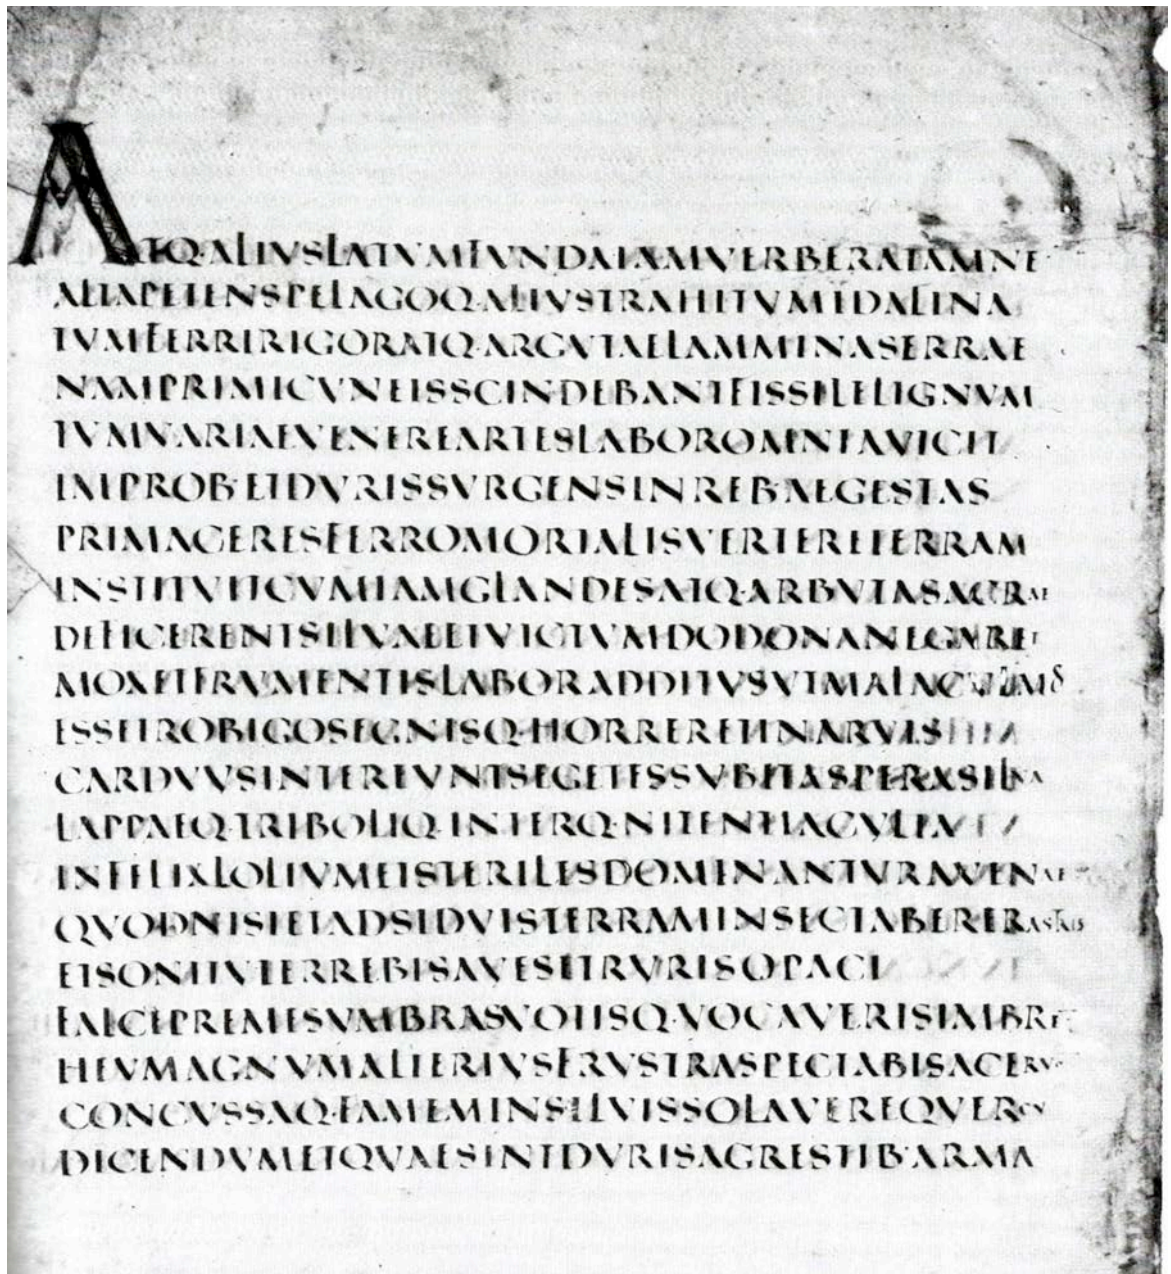 ATQ·ALIVSLATVMFVNDAIAMVERBERATAMNE
ALTAPETENSPELAGOQ·ALIVSTRAHITVMIDALINA
TVMFERRIRIGORATQ·ARGVTAELAMMINASERRAE
NAMPRIMICVNEISSCINDEBANTFISSILELIGNVM
TVMVARIAEVENEREARTESLABOROMNIAVICIT
IMPROB·ETDVRISSVRGENSINREB·AEGESTAS
PRIMACERESFERROMORTALISVERTERETERRAM
INSTITVITCVMIAMGLANDESATQ·ARBVTASACRAE
DEFICERENTSILVAEETVICTVMDODONANEGARET
MOXETFRVMENTISLABORADDITVSVTMALACVLMOS
ESSETROBIGOSEGNISQ·HORRERETINARVIS
CARDVVSINTEREVNTSEGETESSVBITASPERASILVA
LAPPAEQ·TRIBOLIQ·INTERQ·NITENTIACVLTA
INFELIXLOLIVMETSTERILESDOMINANTVRAVENAE
QVODNISIETADSIDVISTERRAMINSECTABERERASTRIS
ETSONITVTERREBISAVESETRVRISOPACI
FALCEPREMESVMBRASVOTISQ·VOCAVERISIMBREM
HEVMAGNVMALTERIVSFRVSTRASPECTABISACERVOM
CONCVSSAQ·FAMEMINSILVISSOLAVEREQVERCV
DICENDVMETQVAESINTDVRISAGRESTIB·ARMA